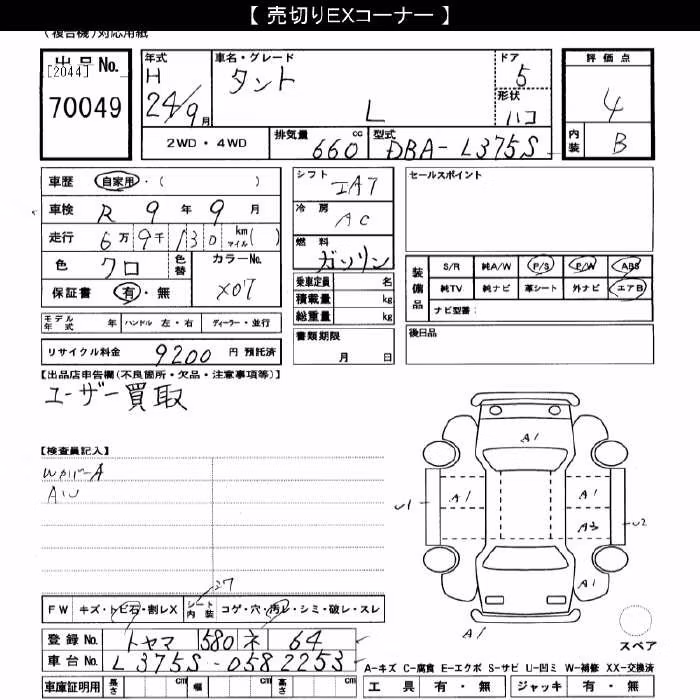 【 売切りEXコーナー 】
(複合機)対応用紙
出品No.
[2044]
70049
年式
H
24/9月
車名・グレード
タント
L
ドア
5
形状
ハコ
評価点
4
内装
B
2WD・4WD
排気量
660 cc
型式
DBA-L375S
車歴 自家用・( )
車検 R 9年 9月
走行 6万9千130 km マイル( )
色 クロ
色替
カラーNo.
X07
保証書 有・無
シフト
IAT
冷房
AC
燃料
ガソリン
乗車定員 名
積載量 kg
総重量 kg
書類期限
月 日
セールスポイント
装備品
S/R 純A/W P/S P/W ABS
純TV 純ナビ 革シート 外ナビ エアB
ナビ型番:
モデル年式 年 ハンドル 左・右 ディーラー・並行
リサイクル料金 9200 円 預託済
後日品
【出品店申告欄(不良箇所・欠品・注意事項等)】
ユーザー買取
【検査員記入】
A1
A1
A1
A3
A1
A1
U1
U2
スペア
FW キズ・トビ石・割レX
シート内装 コゲ・穴・汚レ・シミ・破レ・スレ
登録No. トヤマ 580 ネ 64
車台No. L375S-0582253
車庫証明用 長さ cm 幅 cm 高さ cm
A-キズ C-腐食 E-エクボ S-サビ U-凹ミ W-補修 XX-交換済
工具 有・無 ジャッキ 有・無